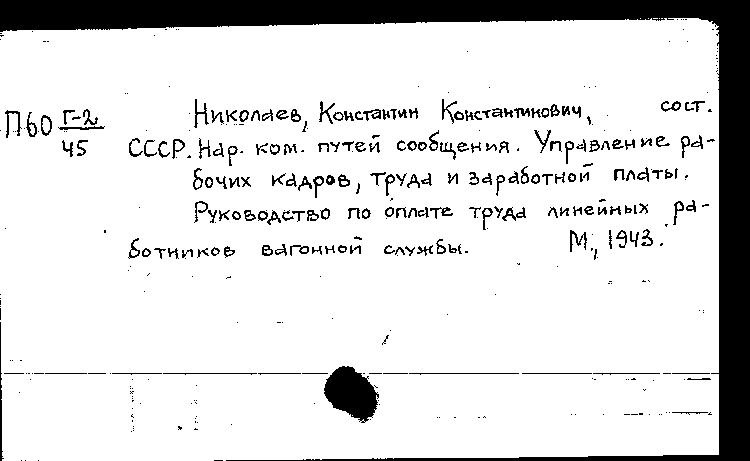 Николаев, Константин Константинович, сост.
П60 Г-2/45
СССР. Нар. ком. путей сообщения. Управление ра-
бочих кадров, труда и заработной платы.
Руководство по оплате труда линейных ра-
ботников вагонной службы. М., 1943.